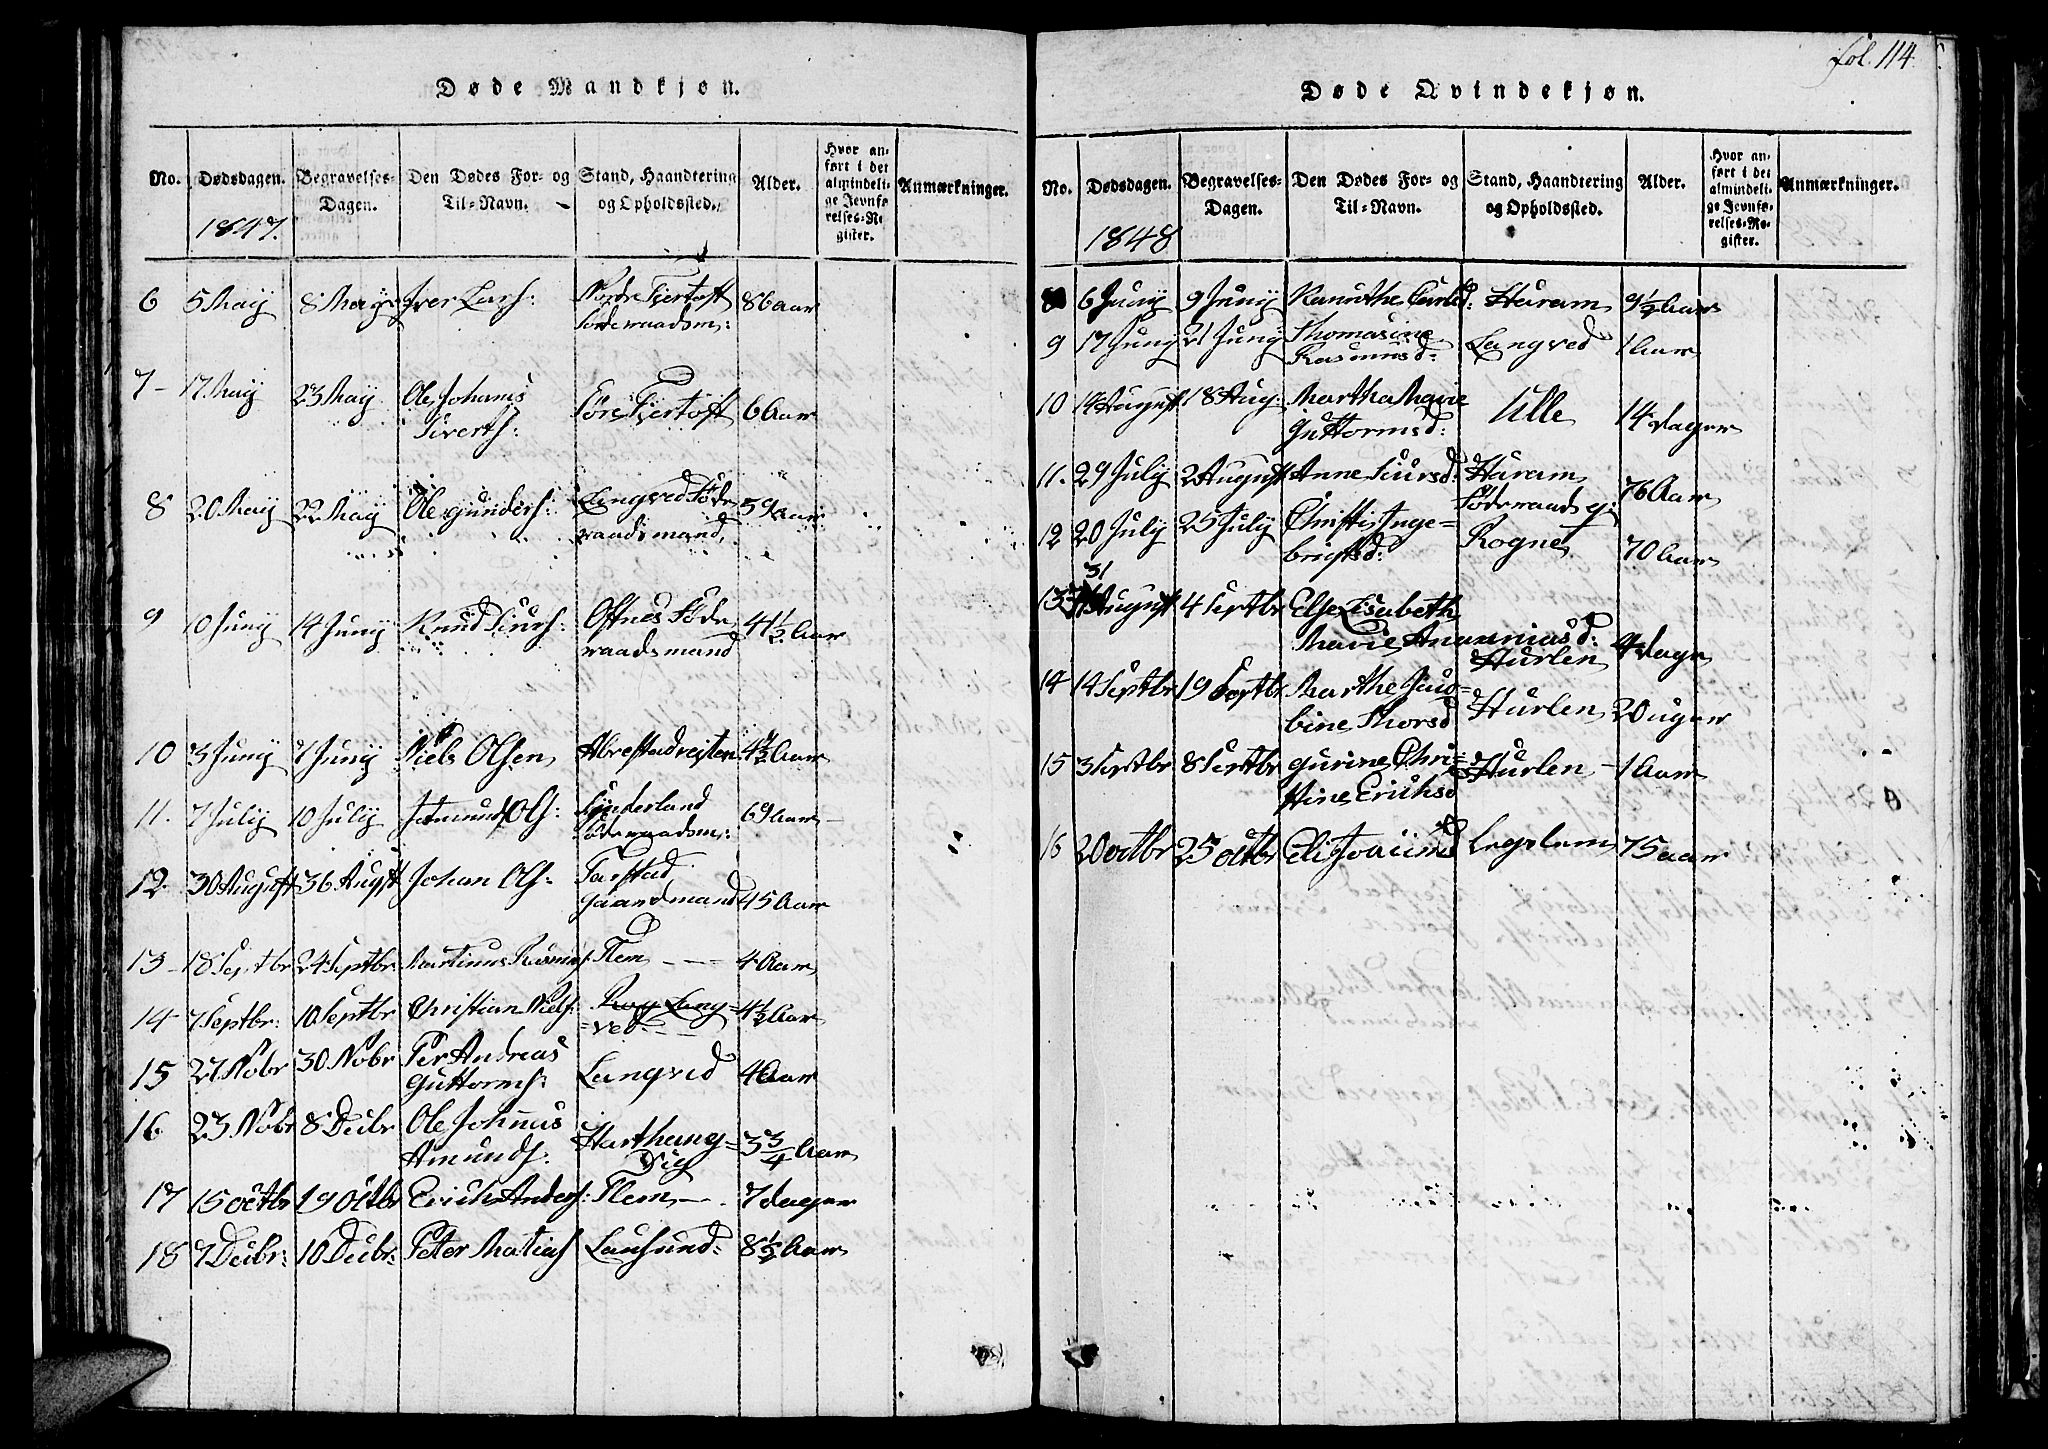 fol. 114.
Døde Mandkjøn.
No. Dødsdagen. Begravelses-Dagen. Den Dødes For- og Til-Navn. Stand, Haandtering og Opholdssted. Alder. Hvor anført i det almindelige Jevnførelses-Register. Anmærkninger.
1847.
6 5 Maij 8 Maij Iver Lars: Nordre Fjertoft 86 Aar
Føderaadsm:
7 - 17 Maij 23 Maij Ole Johannes Søre Fjertoft 6 Aar
Siverts:
8 20 Maij 22 Maij Ole Gunders: Langved Føde 59 Aar
raadsmand
9 10 Junij 14 Junij Knud Siurs: Ostnes Føde 41 1/2 Aar
raadsmand
10 3 Junij 7 Junij Niels Olsen Abrestadreiten 4 1/2 Aar
11. 7 Julij 10 Julij Ols: Synderland 69 Aar
Føderaadsm:
12. 30 August 36 Augst Johan Ols: Farstad
Gaardmand 45 Aar
13 - 18 Septbr 24 Septbr Martinus Rasmus Flem - - - 4 Aar
14 7 Septbr: 10 Septbr Christian Niels: Lang= 4 1/2 Aar
=ved
15 27 Nobr 30 Nobr Per Andreas
Guttorms: Langved 4 Aar
16 23 Nobr 8 Decbr Ole Johannes
Amunds: Harthaug= 3 3/4 Aar
Dig
17 15 Octbr 19 Octbr Erich Anders: Flem - . 7 Dager
18 7 Decbr: 10 Decbr: Peter Matias Lausund= 8 1/2 Aar
Døde Qvindekjøn.
No. Dødsdagen. Begravelses-Dagen. Den Dødes For- og Til-Navn. Stand, Haandtering og Opholdssted. Alder. Hvor anført i det almindelige Jevnførelses-Register. Anmærkninger.
1848
8 6 Junij 9 Junij Kanuthe Haram 9 1/2 Aar
9 17 Junij 21 Junij Thomasine
Rasmusd: Langved 1 Aar
10 14 August 18 Aug: Martha Marie
Guttormsd: Ulle 14 Dager
11. 29 Julij 2 August Anne Siursd: Haram
Føderaads 76 Aar
12 20 Julij 25 Julij Christi Inge=
brigtsd: Rogne 70 Aar
13 31 August 4 Septbr Else Lisabeth
Marie Annaniasd:
Hurlen 4 Dage
14 14 Septbr 19 Septbr Marthe Jaco=
bine Thorsd Hurlen 20 uger
15 3 Septbr 8 Septbr Gurine Chri=
stine Erichsd Hurlen - 1 Aar
16 20 Octbr 25 Octbr Eli 75 aar